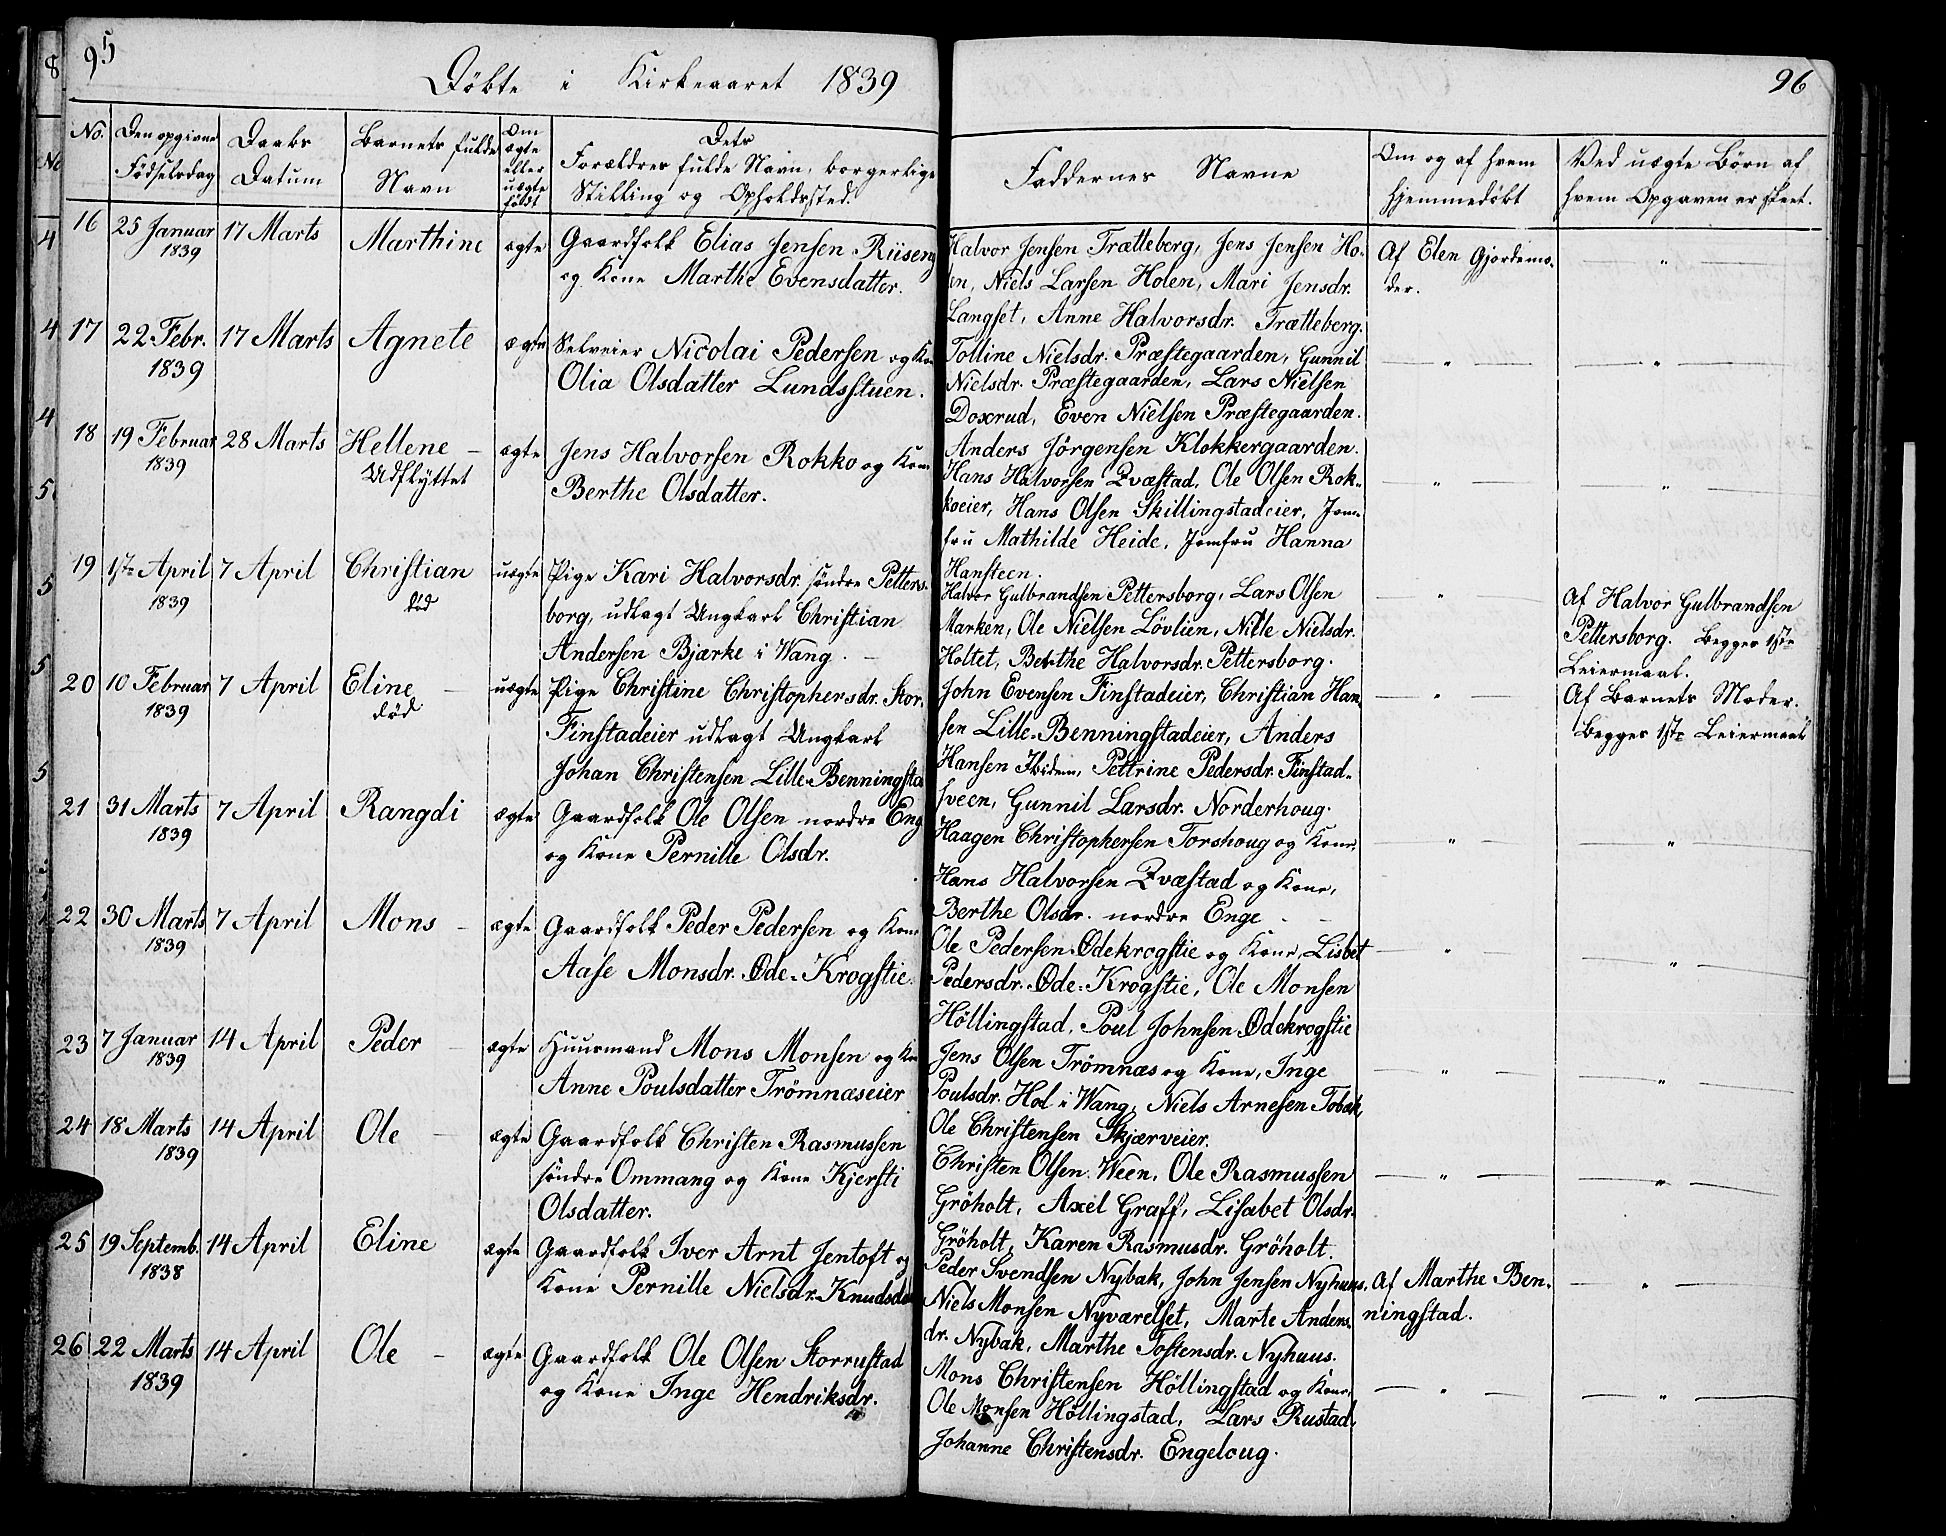 95
Døbte i Kirkeaaret 1839
No.
Den opgivne
Födselsdag
Daabs
Datum
Barnets fulde
Navn
Om
ægte
eller
uægte
födt
Dets
Forældres fulde Navn, borgerlige
Stilling og Opholdssted.
16
25 Januar
1839
17 Marts
Marthine
ægte
Gaardfolk Elias Jensen Riiseng
og Kone Marthe Evensdatter.
17
22 Febr.
1839
17 Marts
Agnete
ægte
Selveier Nicolai Pedersen og Kone
Olia Olsdatter Lundsstuen.
18
19 Februar
1839
28 Marts
Hellene –
Udflyttet
ægte
Jens Halvorsen Rokko og Kone
Berthe Olsdatter.
19
1ste April
1839
7 April
Christian
død
uægte
Pige Kari Halvorsdr. søndre Petters-
borg, udlagt Ungkarl Christian
Andersen Bjærke i Wang. –
20
10 Februar
1839
7 April
Eline –
död
uægte
Pige Christine Christophersdr. Stor-
Finstadeier udlagt Ungkarl
Johan Christensen Lille-Benningsta
21
31 Marts
1839
7 April
Rangdi
ægte
Gaardfolk Ole Olsen nordre Eng
og Kone Pernille Olsdr.
22
30 Marts
1839
7 April
Mons –
ægte
Gaardfolk Peder Pedersen og Kone
Aase Monsdr. Øde-Krogstie.
23
7 Januar
1839
14 April
Peder –
ægte
Huusmand Mons Monsen og Kone
Anne Poulsdatter Trömnæseier
24
18 Marts
1839
14 April
Ole –
ægte
Gaardfolk Christen Rasmussen
söndre Ommang og Kone Kjersti
Olsdatter.
25
19 Septemb.
1838
14 April
Eline
ægte
Gaardfolk Iver Arnt Jentoft og
Kone Pernille Nielsdr. Knudsdal
26
22 Marts
1839
14 April
Ole –
ægte
Gaardfolk Ole Olsen Storrustad
og Kone Inge Hendriksdr.
96
Faddernes Navne
Om og af hvem
hjemmedøbt
Ved uægte Börn af
hvem Opgaven er skeet.
Halvor Jensen Trætteberg, Jens Jensen Ho-
len, Niels Larsen Holen, Mari Jensdr.
Langset, Anne Halvorsdr. Trætteberg.
Af Elen Gjordemo-
der.
Tolline Nielsdr. Præstegaarden, Gunnil
Nielsdr. Præstegaarden, Lars Nielsen
Doxrud, Even Nielsen Præstegaarden.
Anders Jörgensen Klokkergaarden.
Hans Halvorsen Qvæstad, Ole Olsen Rok-
koeier, Hans Olsen Skillingstadeier, Jom-
fru Mathilde Heide, Jomfru Hanna
Hansteen.
Halvor Gulbrandsen Pettersborg, Lars Olsen
Marken, Ole Nielsen Lövlien, Nille Nielsdr.
Holtet, Berthe Halvorsdr. Pettersborg.
Af Halvor Gulbrandsen
Pettersborg. Begges 1ste
Leiermaal.
John Evensen Finstadeier, Christian Han-
sen Lille-Benningstadeier, Anders
Hansen Ibidem, Pettrine Pedersdr. Finstad-
sveen, Gunnil Larsdr. Norderhoug.
Af Barnets Moder.
Begges 1ste Leiermaal
Haagen Christophersen Torshoug og Kone,
Hans Halvorsen Qvæstad og Kone,
Berthe Olsdr. nordre Enge
Ole Pedersen Ødekrogstie og Kone, Lisbet
Pedersdr. Øde-Krogstie, Ole Monsen
Höllingstad, Poul Johnsen Ødekrogstie
Jens Olsen Trömnæs og Kone, Inge
Poulsdr. Hol i Wang, Niels Arnesen Tobak,
Ole Christensen Skjærveier.
Christen Olsen Ween, Ole Rasmussen
Gröholt, Axel Graff, Lisabet Olsdr.
Gröholt, Karen Rasmusdr. Gröholt.
Peder Svendsen Nybak, John Jensen Nyhuus,
Niels Monsen Nyværelset, Marte Anders-
dr. Nybak, Marthe Tostensdr. Nyhuus.
Af Marthe Ben-
ningstad.
Mons Christensen Höllingstad og Kone,
Ole Monsen Höllingstad, Lars Rustad,
Johanne Christensdr. Engeloug.